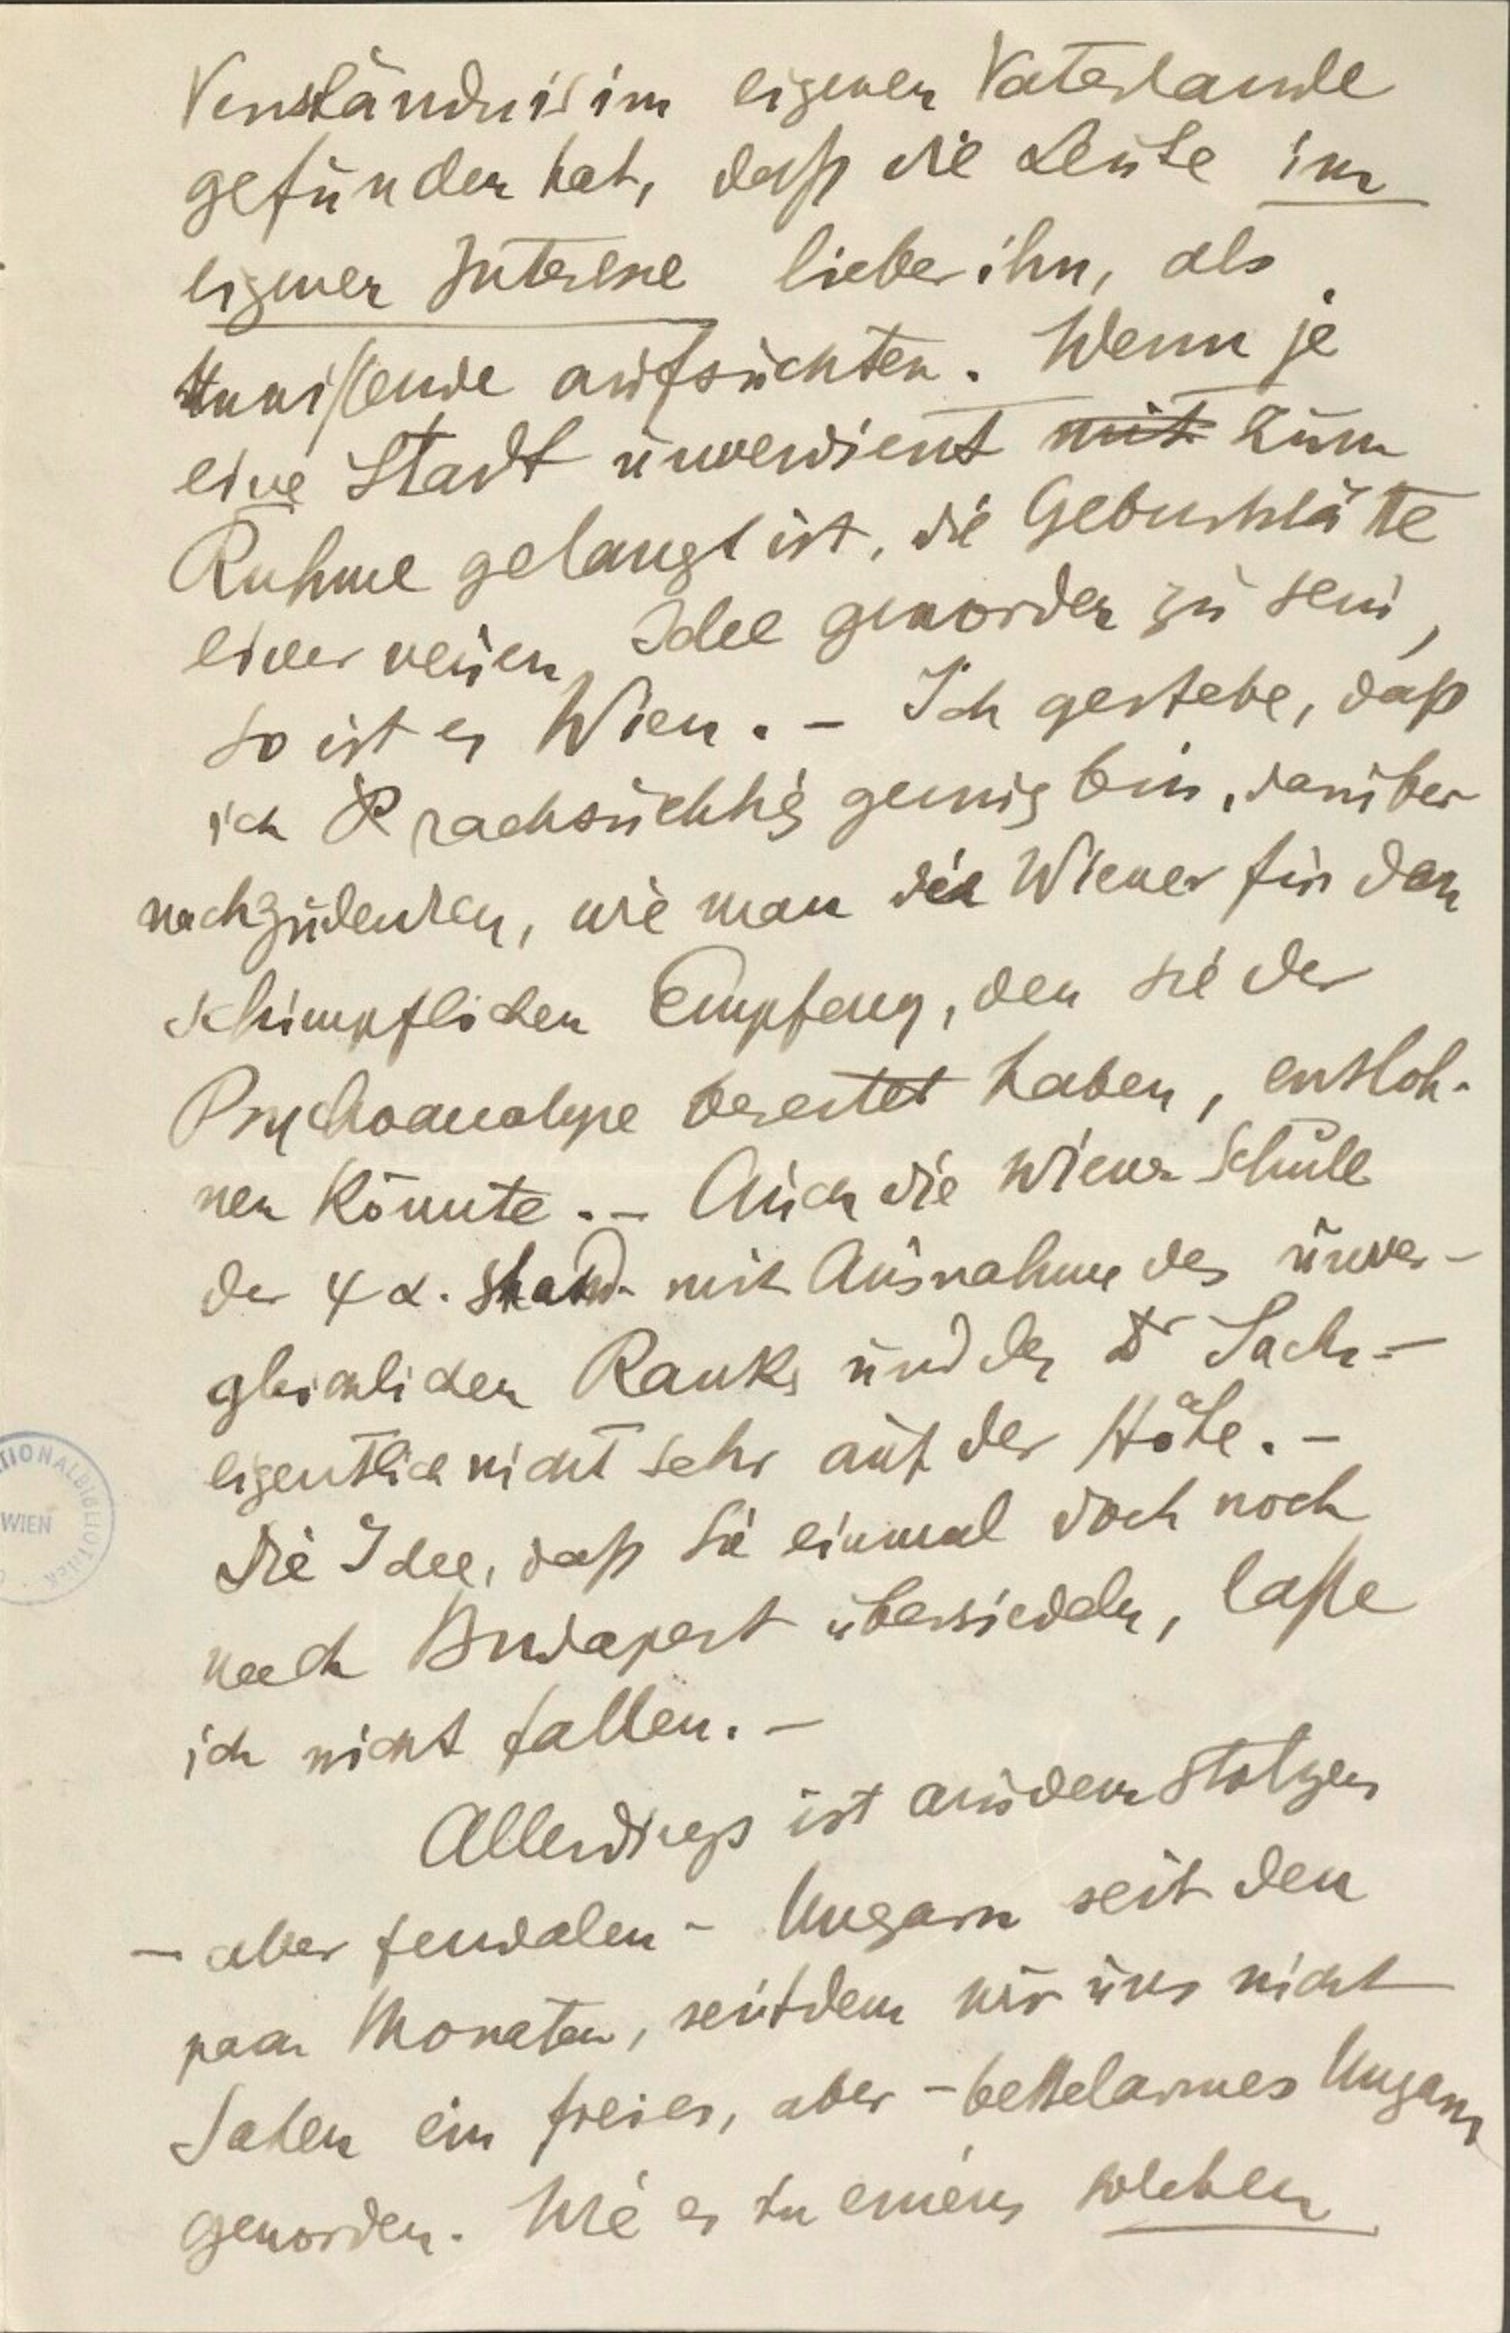 Verständnis im eigenen Vaterlande
gefunden hat, daß die Leute im
eigenen Interesse lieber ihn, als
Unwissende aufsuchten. Wenn je
eine Stadt unverdient mit zum
Ruhme gelangt ist, die Geburtsstätte
einer neuen Idee geworden zu sein,
so ist es Wien. – Ich gestehe, daß
ich rachsüchtig genug bin, darüber
nachzudenken, wie man die Wiener für den
schimpflichen Empfang, den sie der
Psychoanalyse bereitet haben, entloh-
nen könnte. – Auch die Wiener Schule
der ψα. stand mit Ausnahme des unver-
gleichlichen Ranks und des Dr Sachs –
eigentlich nicht sehr auf der Höhe. –
Die Idee, daß Sie einmal doch noch
nach Budapest übersiedeln, laße
ich nicht fallen. –
Allerdings ist aus dem stolzen
– aber feudalen – Ungarn seit den
paar Monaten, seitdem wir uns nicht
sahen ein freies, aber – bettelarmes Ungarn
geworden. Wie es in einem solchen
NATIONALBIBLIOTHEK
WIEN